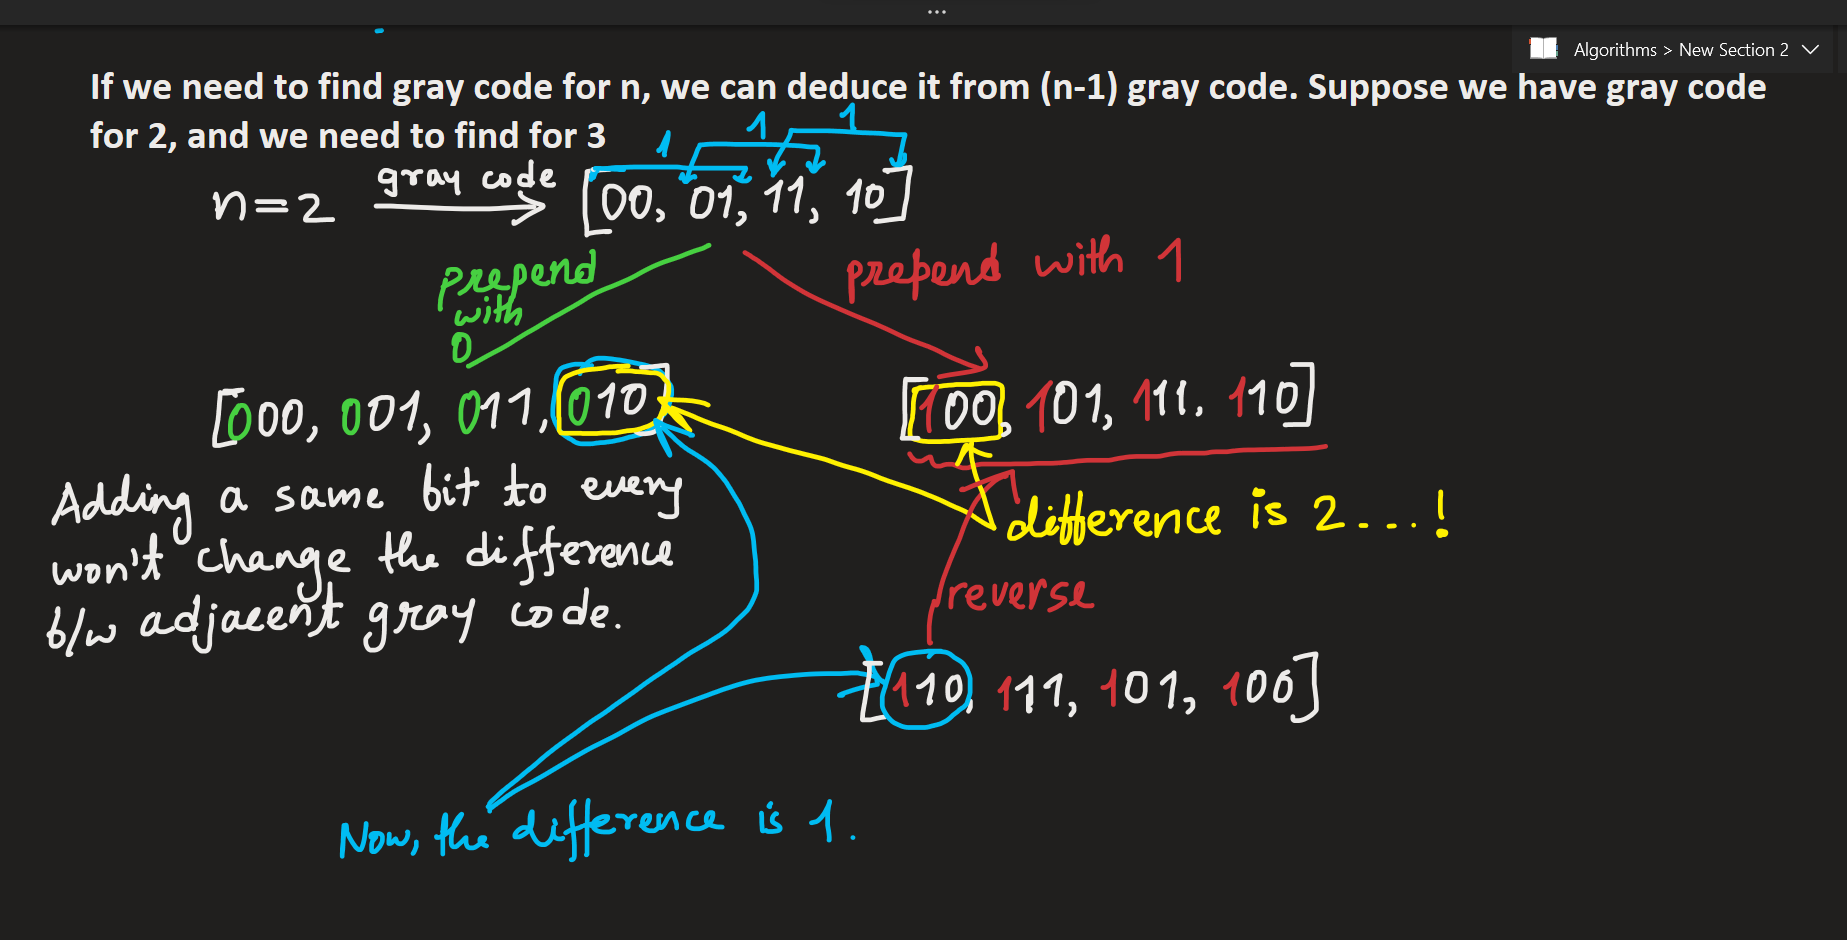 Algorithms > New Section 2
If we need to find gray code for n, we can deduce it from (n-1) gray code. Suppose we have gray code
for 2, and we need to find for 3
1 1 1
n=2 gray code [00, 01, 11, 10]
prepend
with
0
prepend with 1
[000, 001, 011, 010]
[100, 101, 111, 110]
Adding a same bit to every
won't change the difference
b/w adjacent gray code.
difference is 2...!
reverse
[110, 111, 101, 100]
Now, the difference is 1.